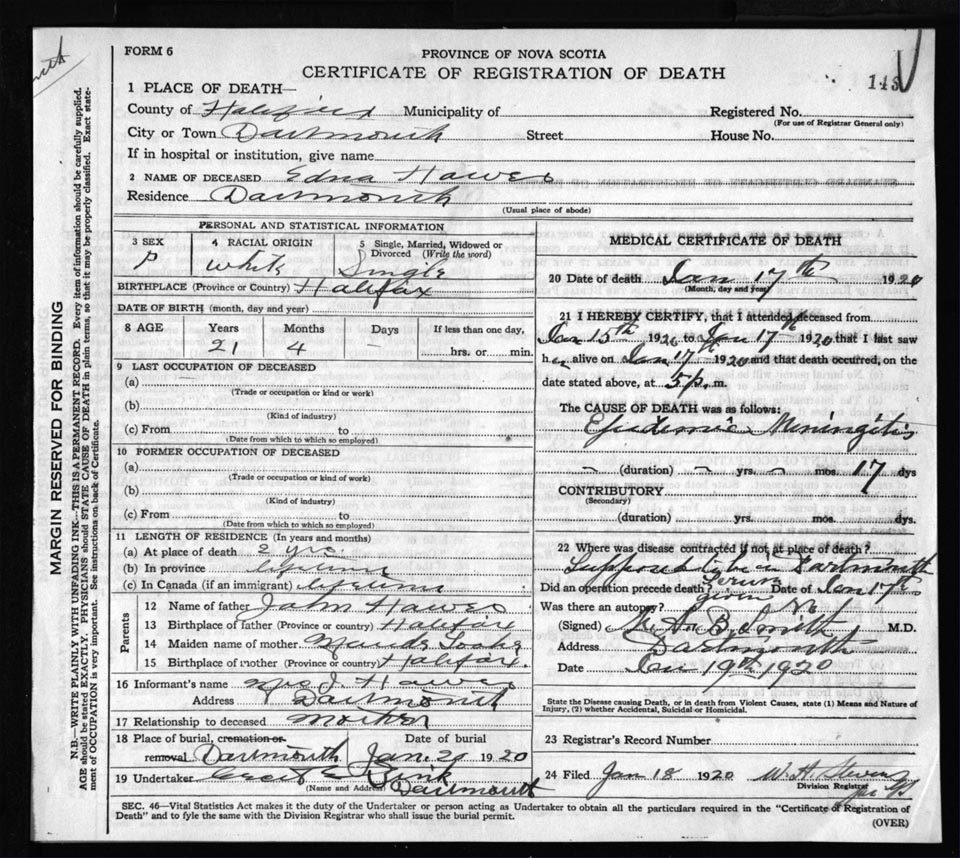 FORM 6
PROVINCE OF NOVA SCOTIA
CERTIFICATE OF REGISTRATION OF DEATH
148
1 PLACE OF DEATH—
County of Halifax Municipality of
Registered No.
(For use of Registrar General only)
City or Town Dartmouth Street House No.
If in hospital or institution, give name
2 NAME OF DECEASED Edna Hawes
Residence Dartmouth
(Usual place of abode)
PERSONAL AND STATISTICAL INFORMATION
3 SEX 4 RACIAL ORIGIN 5 Single, Married, Widowed or Divorced (Write the word)
White Single
BIRTHPLACE (Province or Country) Halifax
DATE OF BIRTH (month, day and year)
8 AGE Years Months Days If less than one day,
21 4 – hrs. or min.
9 LAST OCCUPATION OF DECEASED
(a) –
(Trade or occupation or kind or work)
(b)
(Kind of industry)
(c) From to
(Date from which to which so employed)
10 FORMER OCCUPATION OF DECEASED
(a)
(Trade or occupation or kind of work)
(b)
(Kind of industry)
(c) From to
(Date from which to which so employed)
11 LENGTH OF RESIDENCE (In years and months)
(a) At place of death 2 yrs.
(b) In province lifetime
(c) In Canada (if an immigrant) lifetime
Parents
12 Name of father John Hawes
13 Birthplace of father (Province or country) Halifax
14 Maiden name of mother Maude
15 Birthplace of mother (Province or country) Halifax.
16 Informant's name Mrs J. Hawes
Address Dartmouth
17 Relationship to deceased Mother
18 Place of burial, cremation or Date of burial
removal Dartmouth Jan. 21 1920
19 Undertaker
(Name and Address) Dartmouth
MEDICAL CERTIFICATE OF DEATH
20 Date of death Jan 17th 1920
(Month, day and year)
21 I HEREBY CERTIFY, that I attended deceased from
Jan 15th 1920 to Jan 17th 1920 that I last saw
her alive on Jan 17th 1920 and that death occurred, on the
date stated above, at 5 p. m.
The CAUSE OF DEATH was as follows:
Epidemic Miningitis
– (duration) – yrs. – mos. 17 dys
CONTRIBUTORY
(Secondary)
(duration) yrs. mos. dys.
22 Where was disease contracted if not at place of death?
Supposed to be in Dartmouth
Did an operation precede death? Serum given Date of Jan 17th
Was there an autopsy? No
(Signed) A. B. Smith M.D.
Address Dartmouth
Date Jan 19th 1920
State the Disease causing Death, or in death from Violent Causes, state (1) Means and Nature of
Injury, (2) whether Accidental, Suicidal or Homicidal.
23 Registrar's Record Number
24 Filed Jan 18 1920 W. H. Stevens
Division Registrar
SEC. 46—Vital Statistics Act makes it the duty of the Undertaker or person acting as Undertaker to obtain all the particulars required in the "Certificate of Registration of
Death" and to fyle the same with the Division Registrar who shall issue the burial permit.
(OVER)
MARGIN RESERVED FOR BINDING
N.B.—WRITE PLAINLY WITH UNFADING INK—THIS IS A PERMANENT RECORD. Every item of information should be carefully supplied.
AGE should be stated EXACTLY. PHYSICIANS should STATE CAUSE OF DEATH in plain terms, so that it may be properly classified. Exact state-
ment of OCCUPATION is very important. See instructions on back of Certificate.